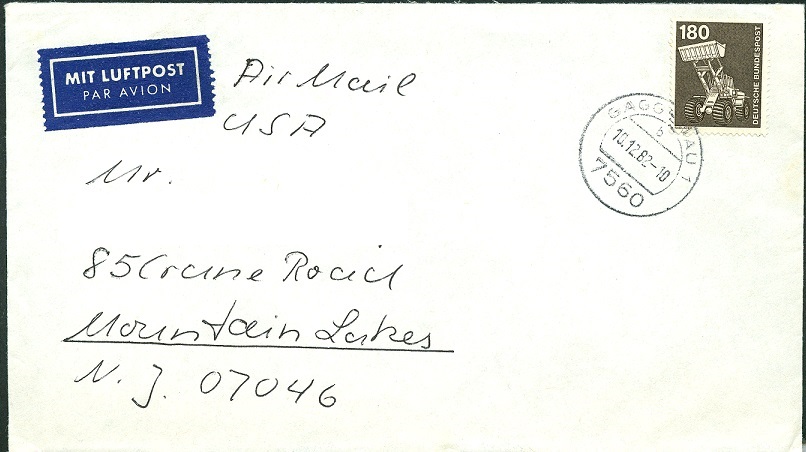 MIT LUFTPOST
PAR AVION
Air Mail
USA
180
DEUTSCHE BUNDESPOST
GAGGENAU 1
b
10.12.82-10
7560
Mr.
85 Crane Road
Mountain Lakes
N. J. 07046